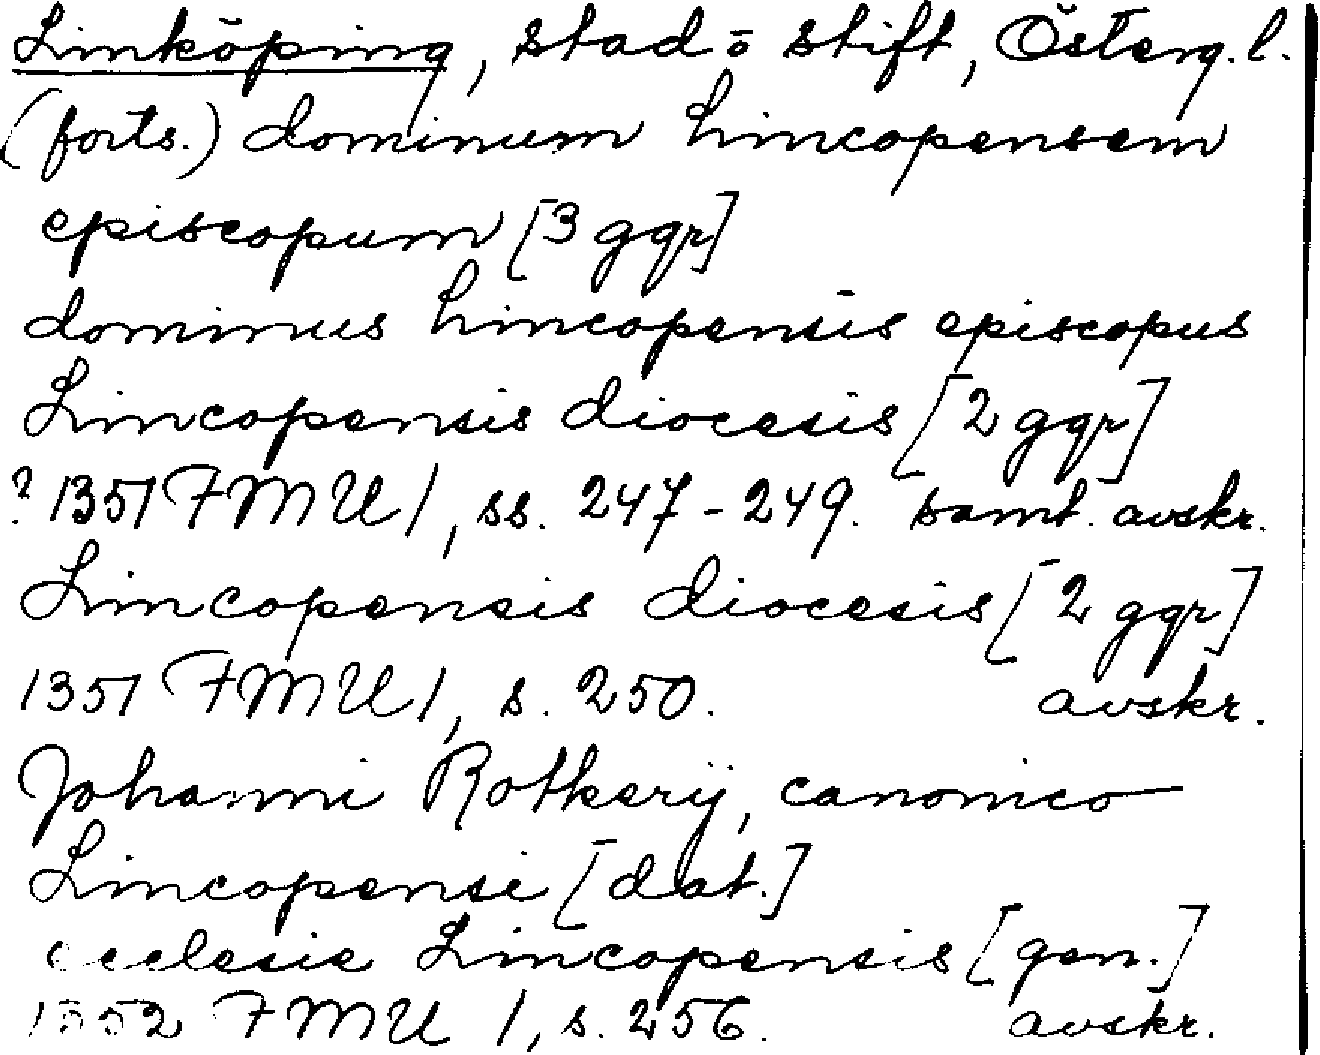 Linköping, stad o stift, Österg. l.
(forts.) dominum lincopensem
episcopum [3 ggr]
dominus lincopensis episcopus
Lincopensis diocesis [2 ggr]
? 1351 FMU 1, ss. 247-249. samt. avskr.
Lincopensis diocesis [2 ggr]
1351 FMU 1, s. 250. avskr.
Johanni Rotkerij, canonico
Lincopensi [dat.]
ecclesie Lincopensis [gen.]
1352 FMU 1, s. 256. avskr.